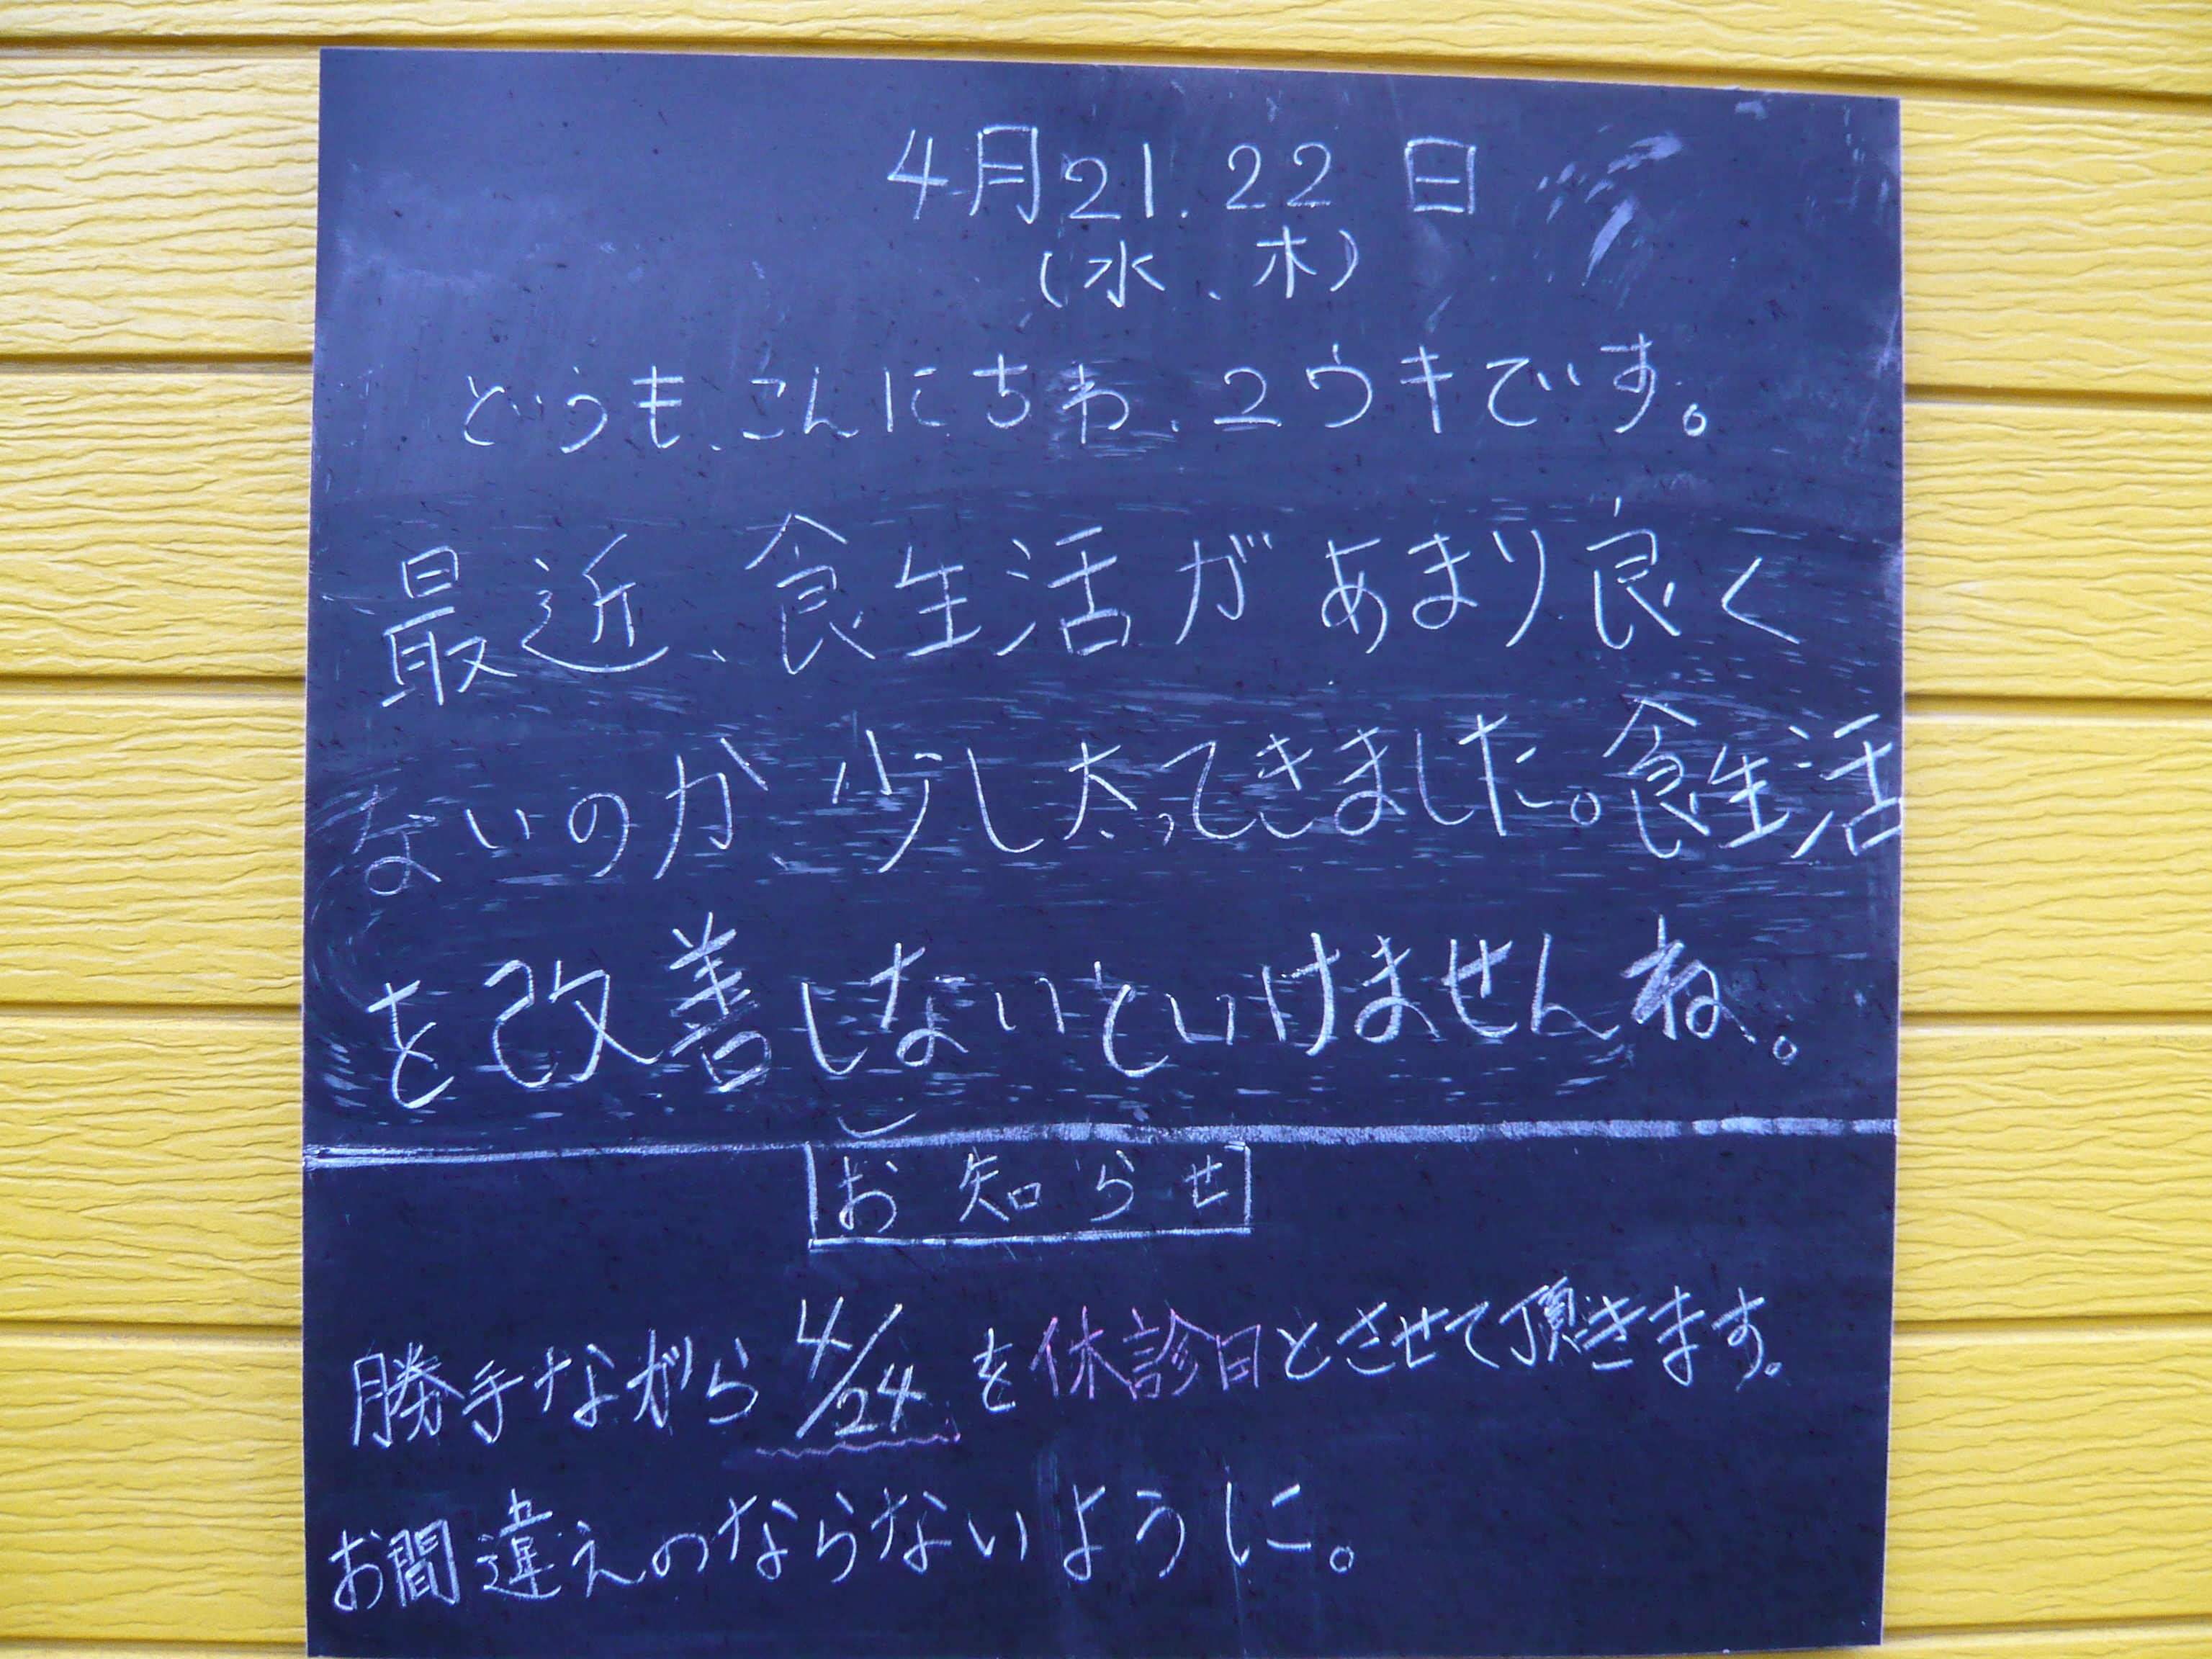 4月21.22日
(水、木)
どうも、こんにちわ、ユウキです。
最近、食生活があまり良く
ないのか、少し太ってきました。食生活
を改善しないといけませんね。
お知らせ
勝手ながら4/24を休診日とさせて頂きます。
お間違えのならないように。